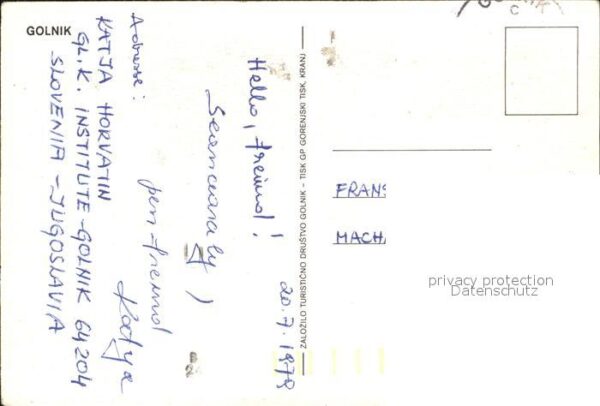 GOLNIK
Hello, freind!
20.7.1979
pen-freind
Katya
Adresse:
KATJA HORVATIN
GL.K. INSTITUTE-GOLNIK 64204
SLOVENIA-JUGOSLAVIA
ZALOŽILO TURISTIČNO DRUŠTVO GOLNIK – TISK GP GORENJSKI TISK, KRANJ
FRANS
MACH
privacy protection
Datenschutz